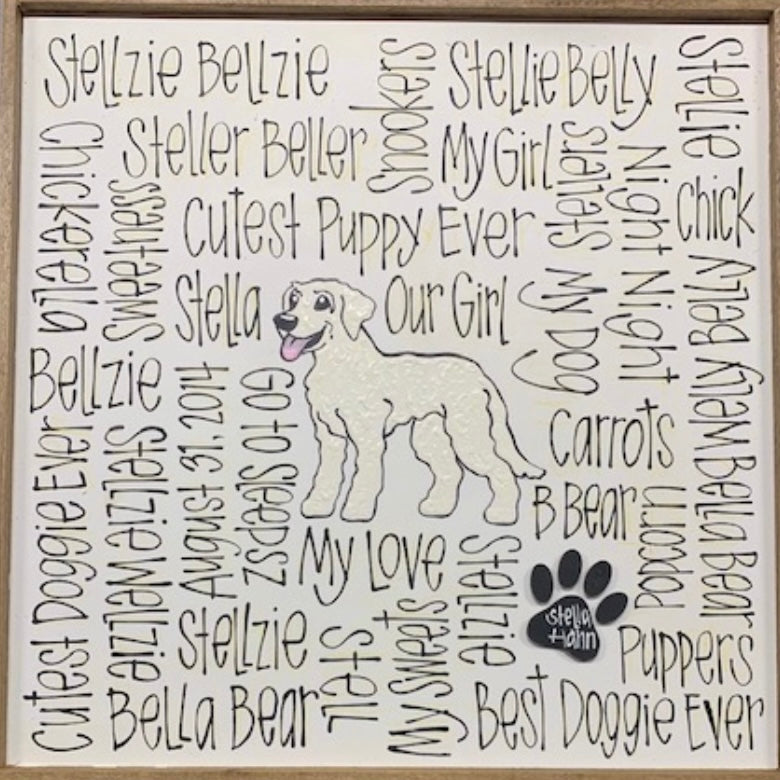 Stellzie Bellzie
Snookers
Stellie Belly
Stellie
Chickarella
Steller Beller
My Girl
Stellers
Night Night Night
Sweetness
Cutest Puppy Ever
Chick
Stella
Our Girl
My Dog
Belly Welly Bella Bear
Bellzie
August 31, 2014
Go to Sleepsz
Carrots
Cutest Doggie Ever
Stellzie Wellzie
B Bear
Popcorn
My Love
Stellzie
Stella
Hahn
Stellzie
My Sweets
Stell
Puppers
Bella Bear
Best Doggie Ever